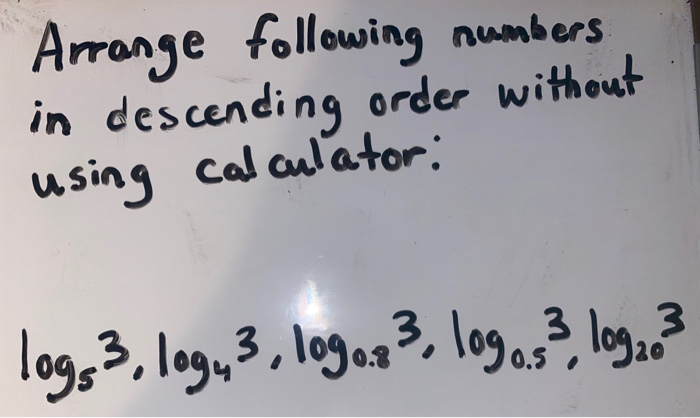 Arrange following numbers
in descending order without
using calculator:
log₅3, log₄3, log₀.₈3, log₀.₅3, log₂₀3